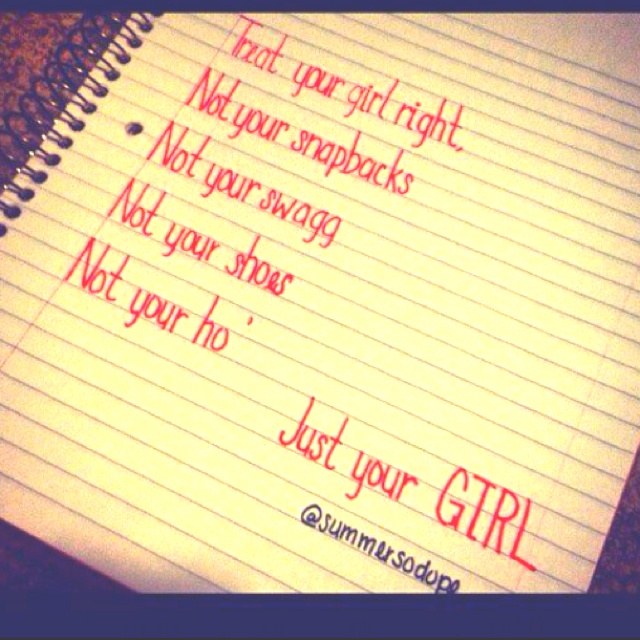 Treat your girl right,
Not your snapbacks
Not your swagg
Not your shoes
Not your ho'
Just your GIRL
@summersodope